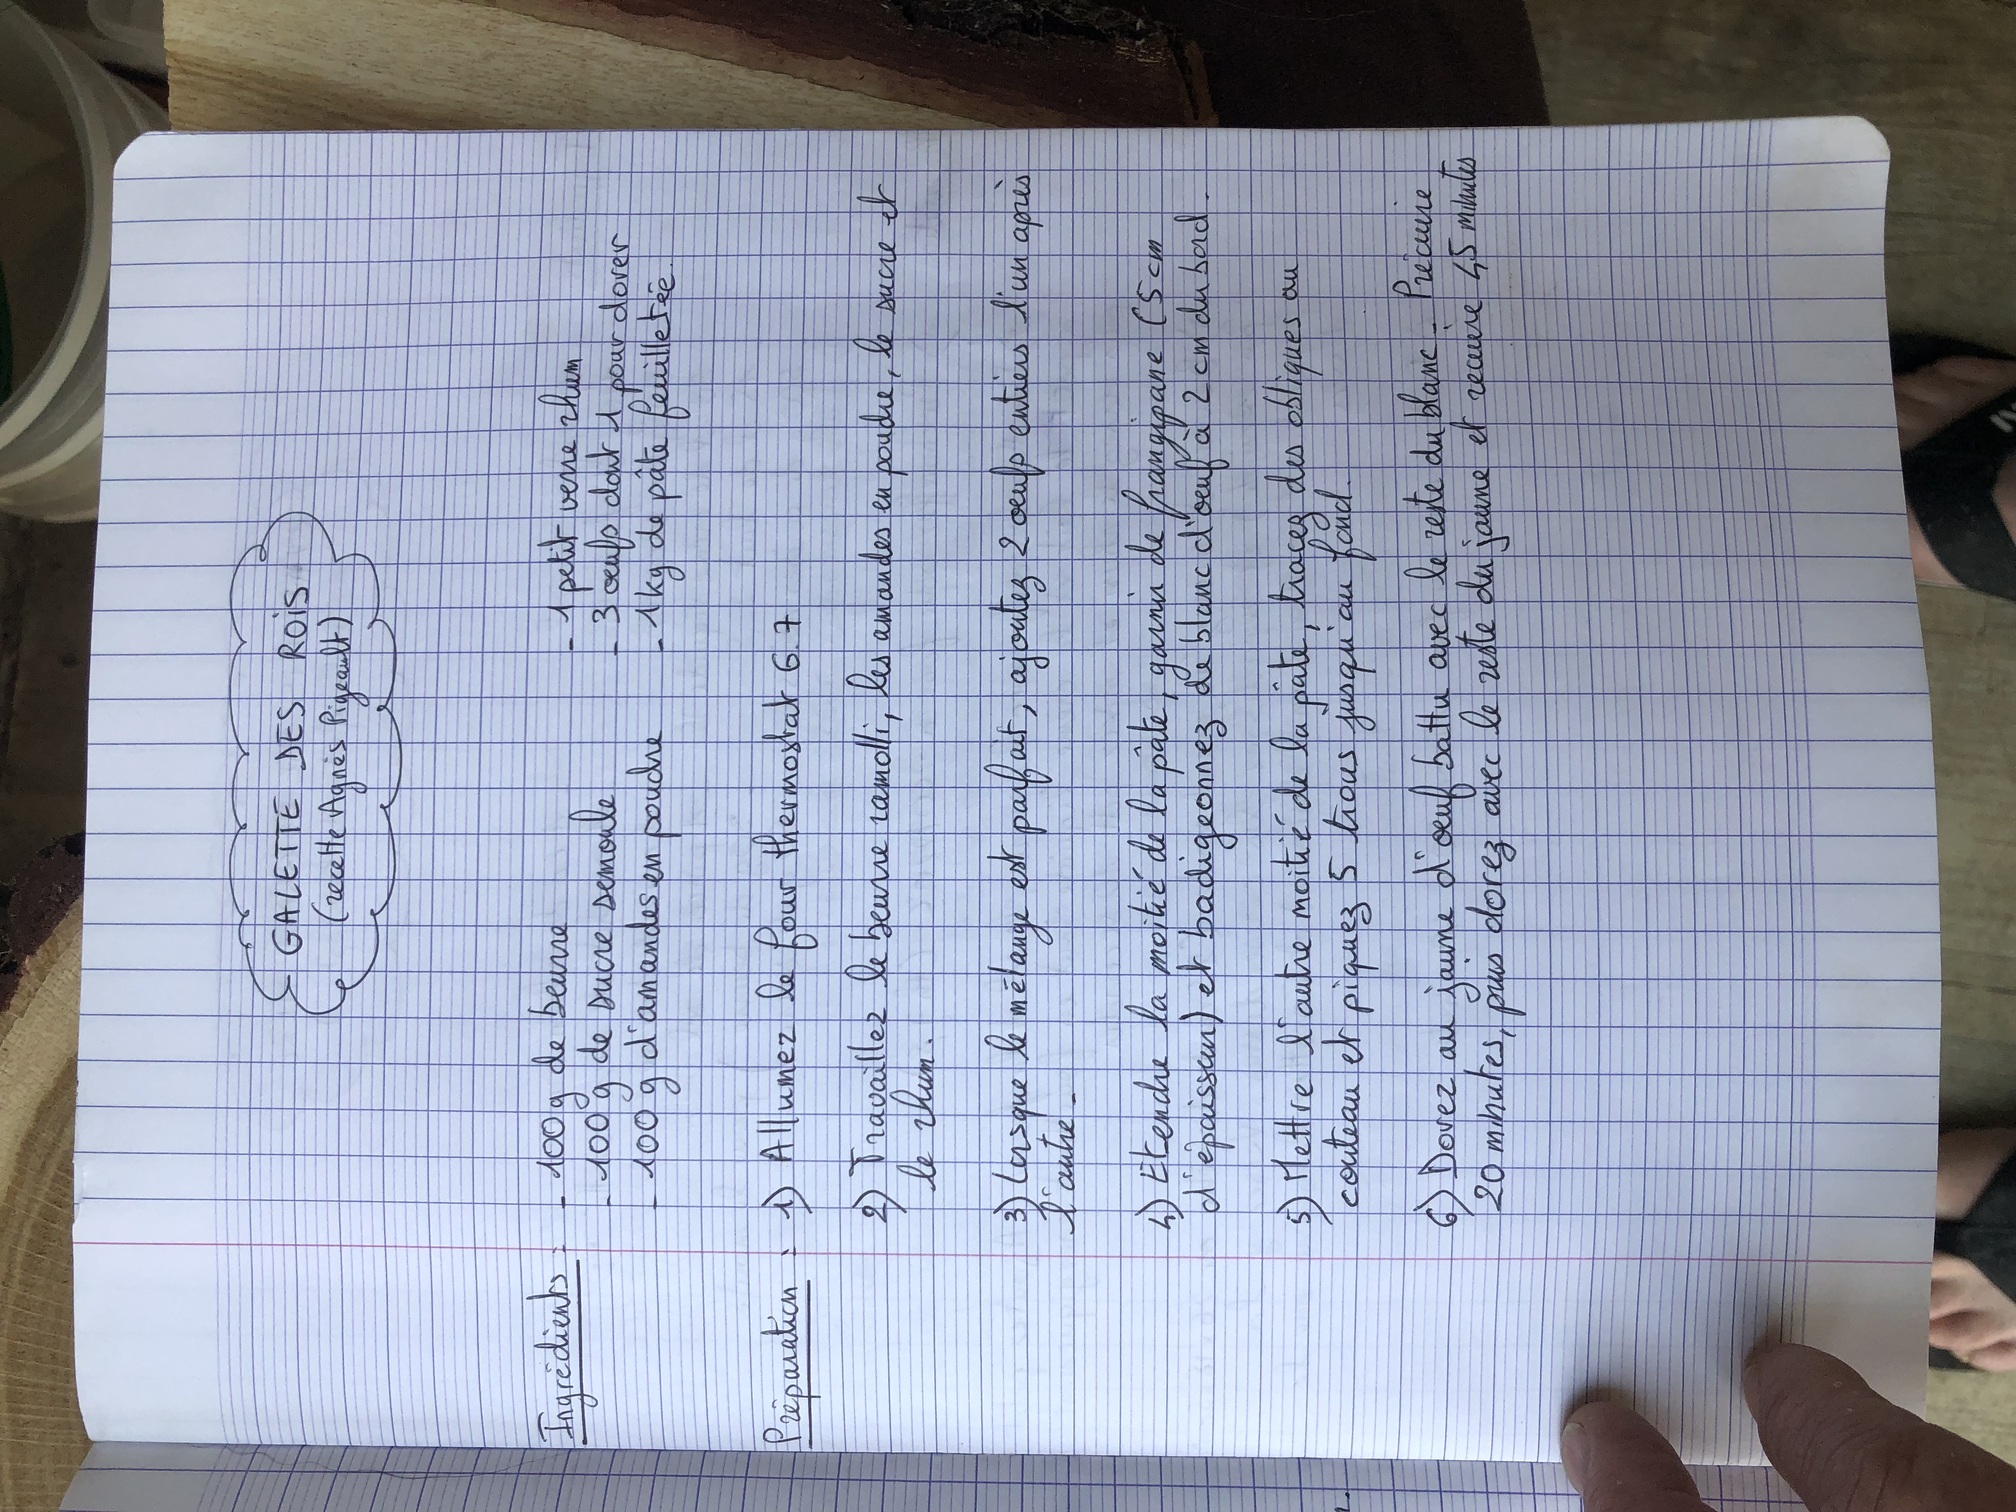 GALETTE DES ROIS
(recette Agnès Pigeault)
Ingrédients : - 100g de beurre - 1 petit verre rhum
- 100g de sucre semoule - 3 oeufs dont 1 pour dorer
- 100g d'amandes en poudre - 1kg de pâte feuilletée.
Préparation : 1) Allumez le four thermostat 6.7
2) Travaillez le beurre ramolli, les amandes en poudre, le sucre et
le rhum.
3) Lorsque le mélange est parfait, ajoutez 2 oeufs entiers l'un après
l'autre.
4) Etendre la moitié de la pâte, garnir de frangipane (5cm
d'épaisseur) et badigeonnez de blanc d'oeuf à 2 cm du bord.
5) Mettre l'autre moitié de la pâte, tracez des obliques au
couteau et piquez 5 trous jusqu'au fond.
6) Dorez au jaune d'oeuf battu avec le reste du blanc. Précuire
20 minutes, puis dorez avec le reste du jaune et recuire 45 minutes